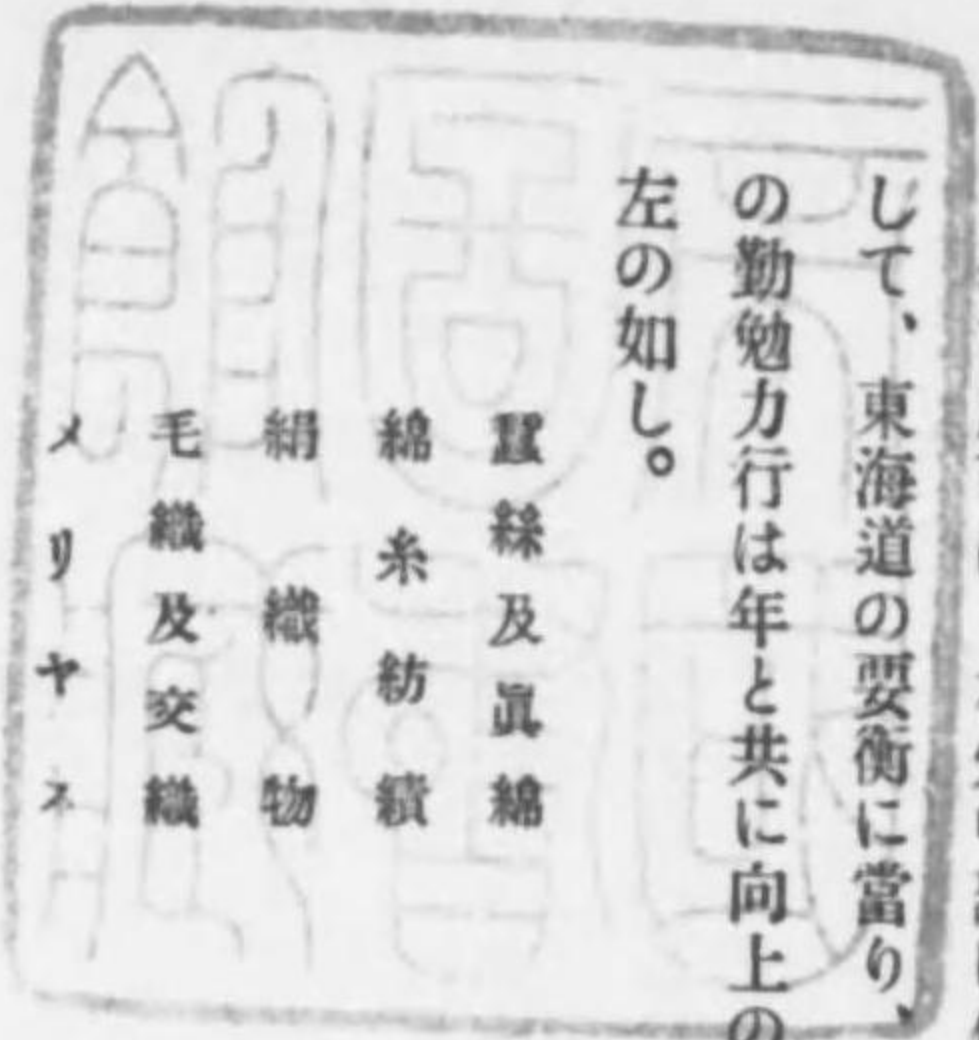 して、東海道の要衝に當り、
の勤勉力行は年と共に向上の
左の如し。
蠶絲及眞綿
綿糸紡績
絹織物
毛織及交織
メリヤス